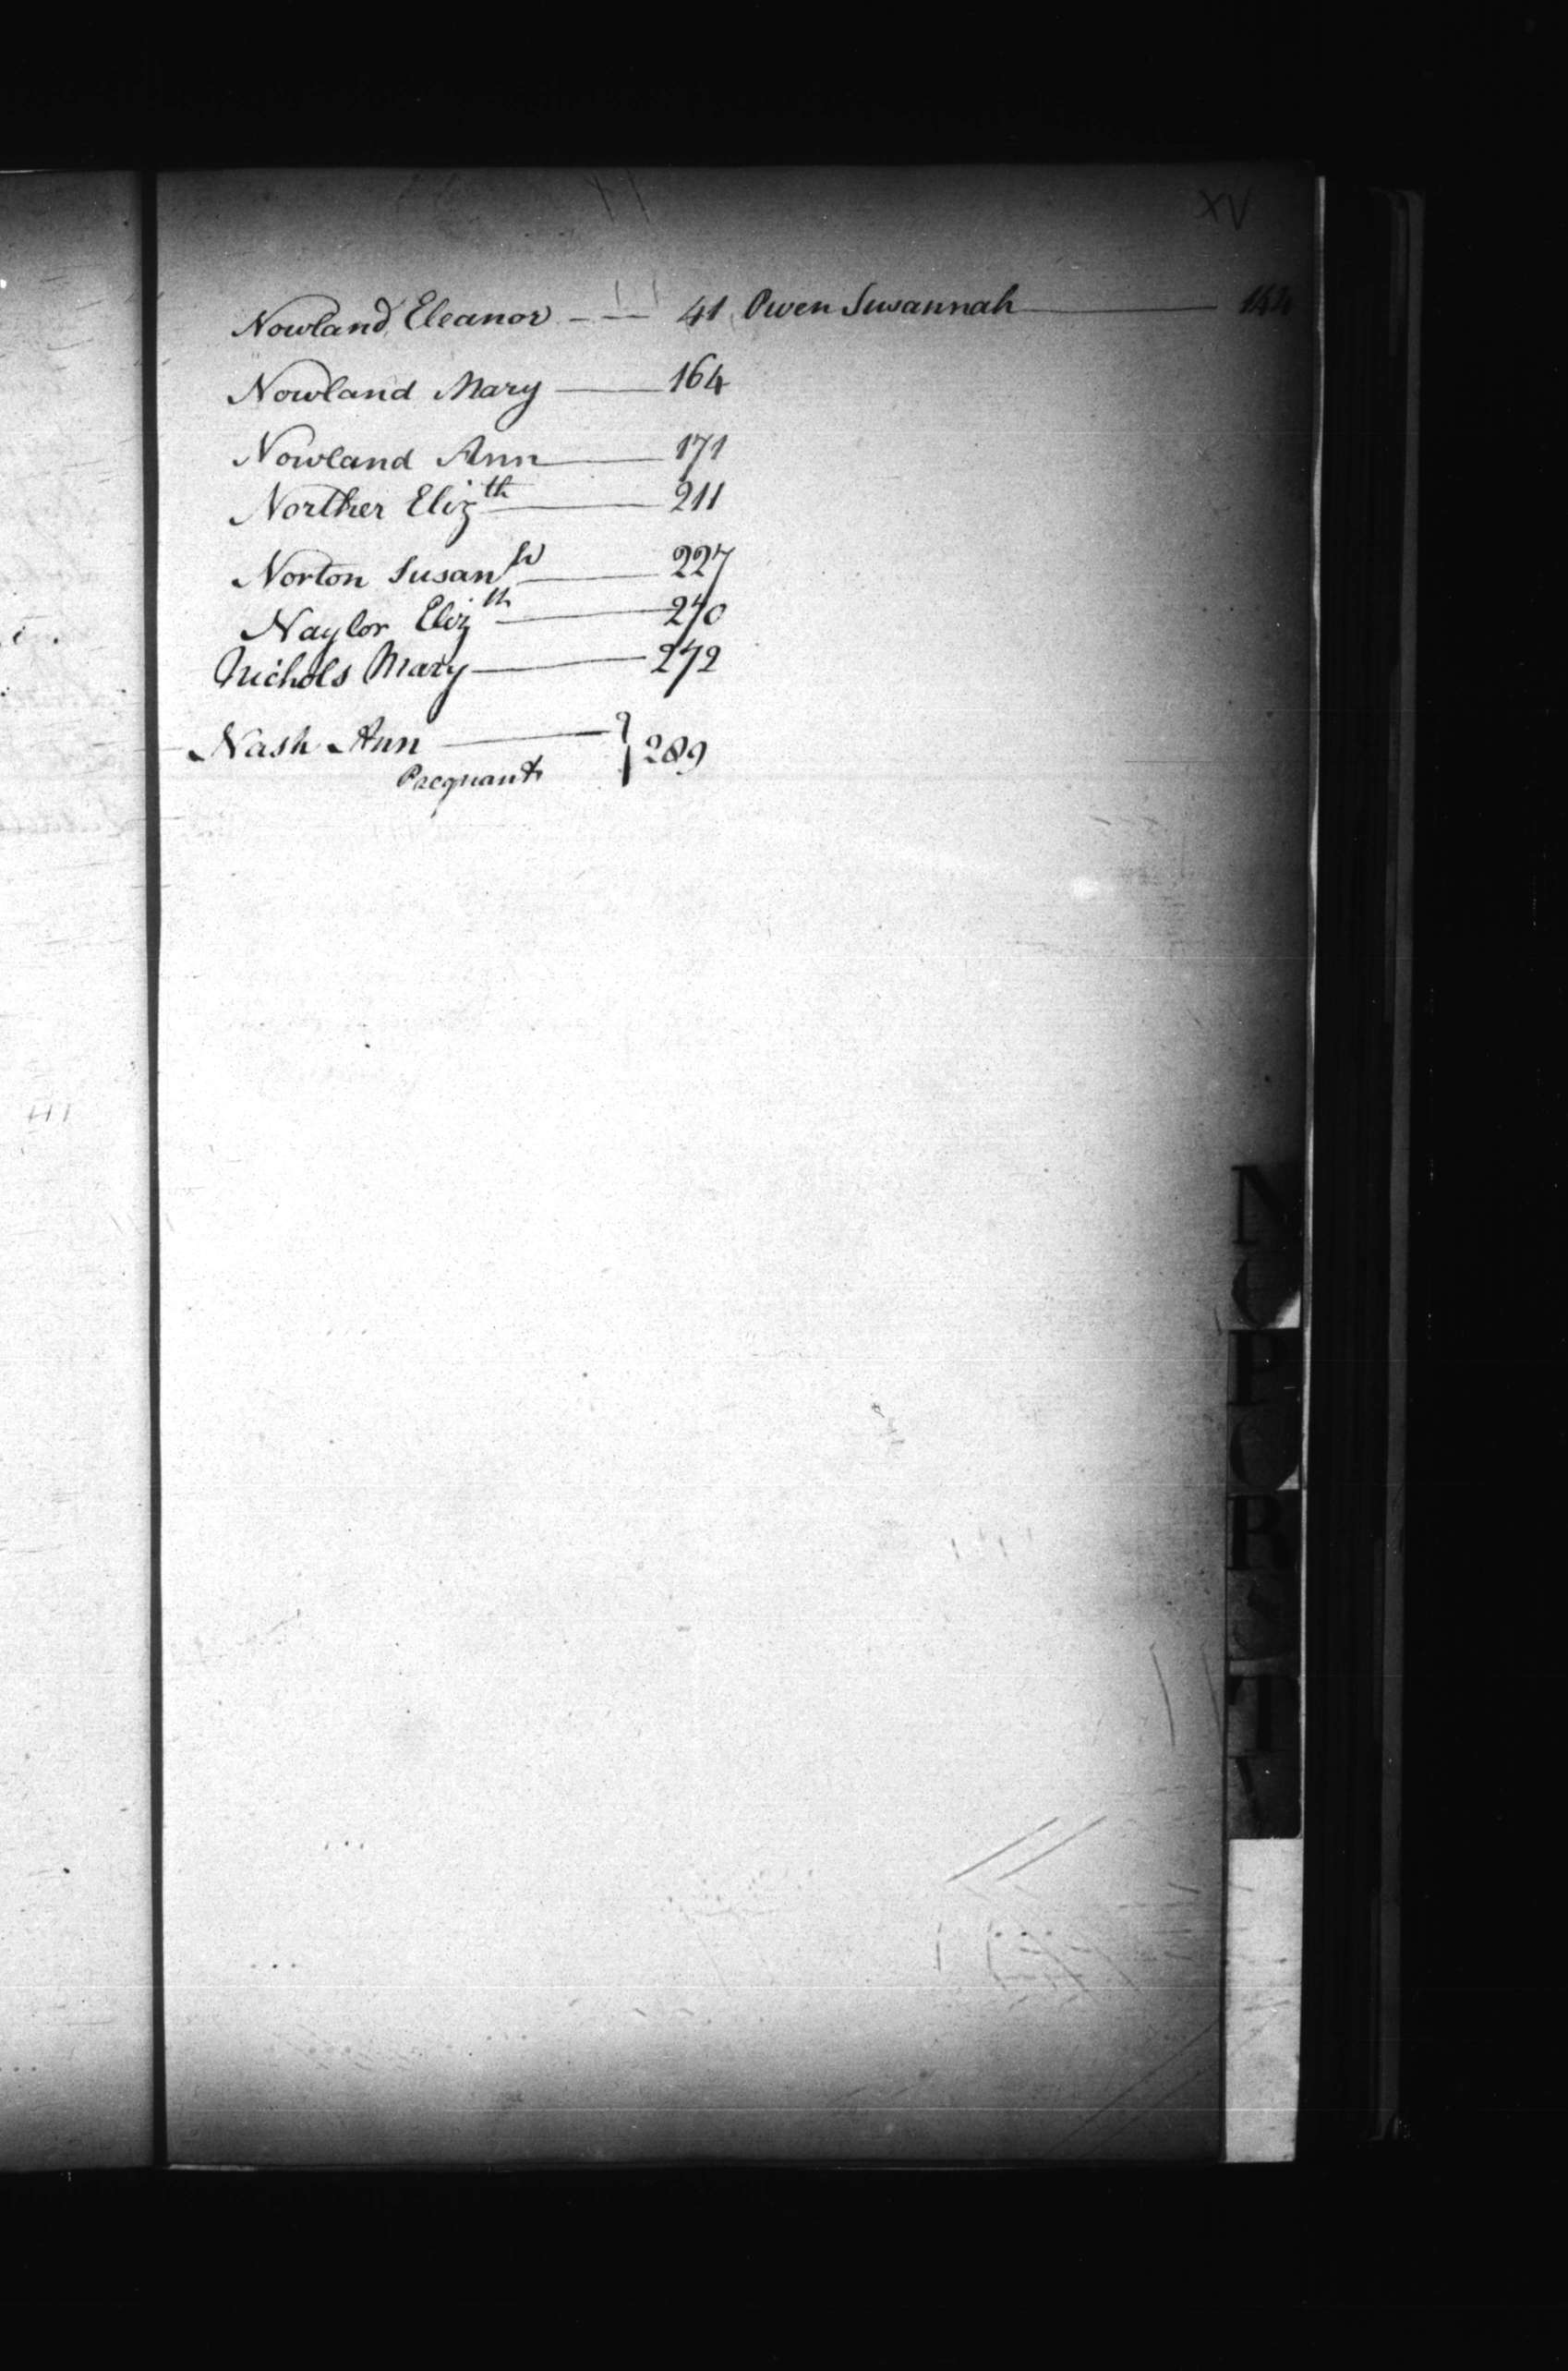 XV
Nowland Eleanor - - - 41 Owen Suwannah 144
Nowland Mary 164
Nowland Ann 171
Norther Eliz th 211
Norton Susan h 227
Naylor Eliz th 270
Nichols Mary 272
Nash Ann } 289
Pregnant
N
O
P
Q
R
S
T
V